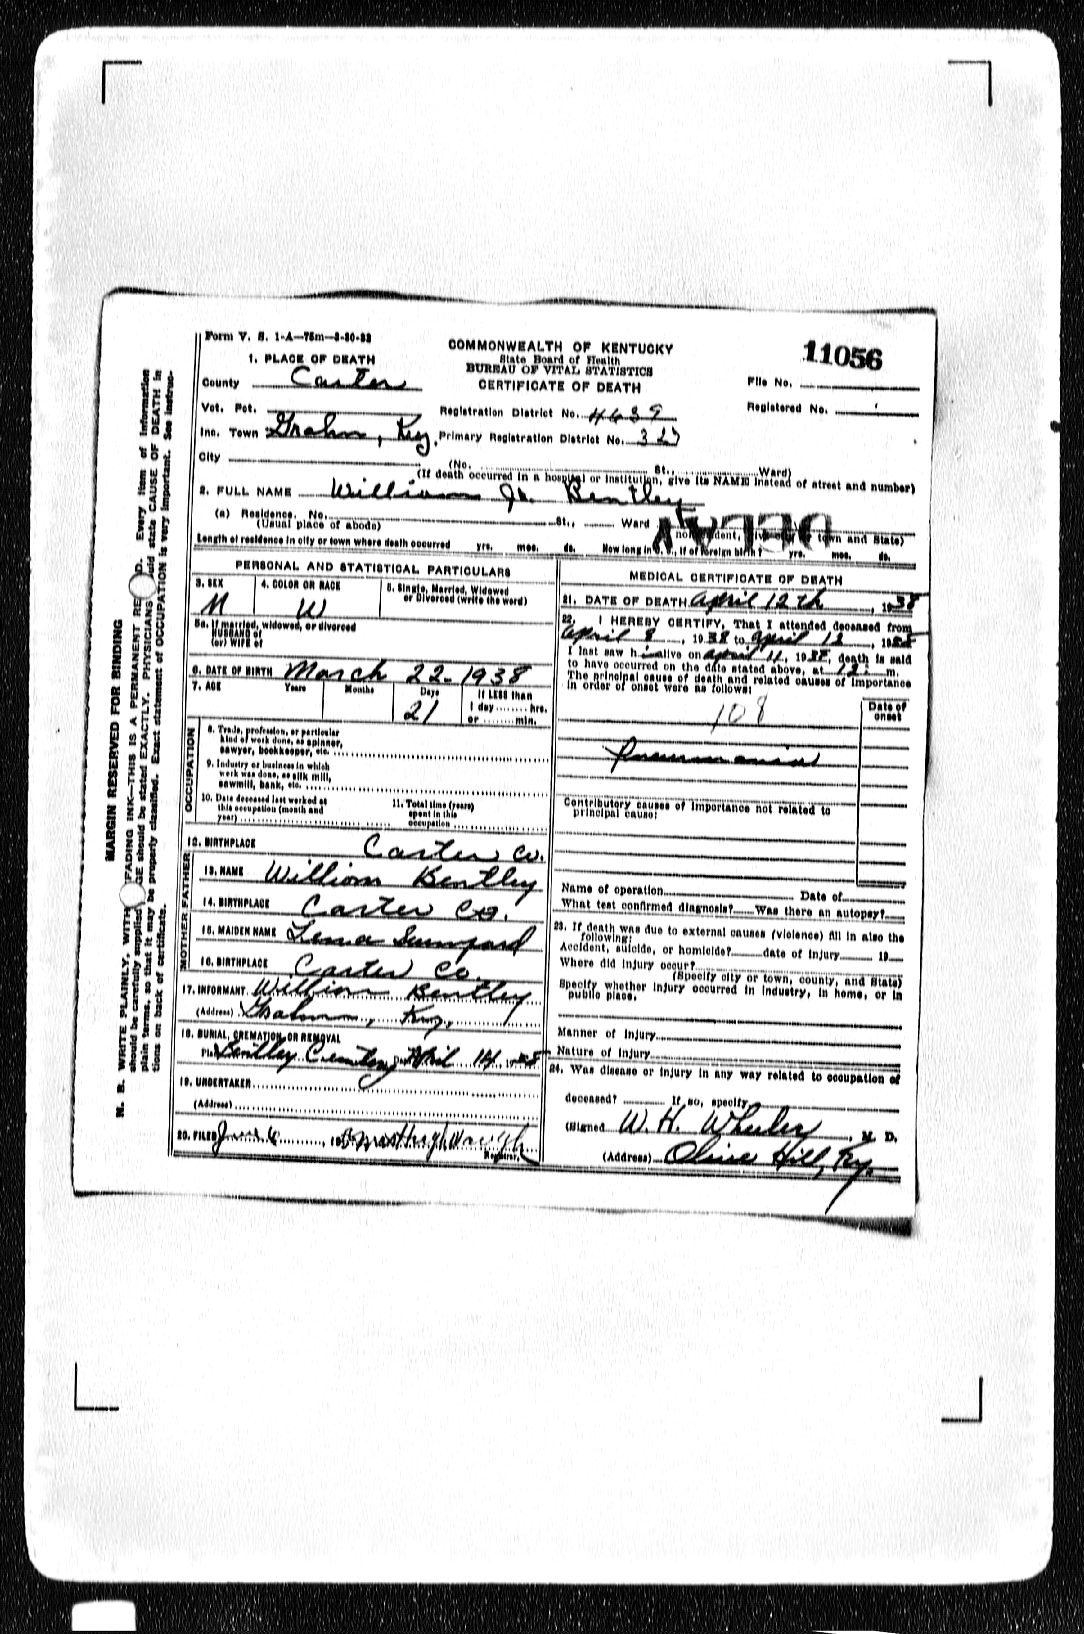 Form V. S. 1-A—75m—8-30-33
COMMONWEALTH OF KENTUCKY
State Board of Health
BUREAU OF VITAL STATISTICS
CERTIFICATE OF DEATH
11056
1. PLACE OF DEATH
County Carter
File No.
Vot. Pct.
Registration District No. 4639
Registered No.
Inc. Town Grahn, Ky. Primary Registration District No.
City (No. St., Ward)
(If death occurred in a hospital or institution, give its NAME instead of street and number)
2. FULL NAME William Jr. Bentley
(a) Residence. No. St., Ward
(Usual place of abode)
DELAY
Length of residence in city or town where death occurred yrs. mos. ds. How long in U. S., if of foreign birth? yrs. mos. ds.
PERSONAL AND STATISTICAL PARTICULARS
3. SEX
4. COLOR OR RACE
5. Single, Married, Widowed
or Divorced (write the word)
M W
5a. If married, widowed, or divorced
HUSBAND of
(or) WIFE of
6. DATE OF BIRTH March 22-1938
7. AGE Years Months Days If LESS than
21 1 day hrs.
or min.
OCCUPATION
8. Trade, profession, or particular
kind of work done, as spinner,
sawyer, bookkeeper, etc.
9. Industry or business in which
work was done, as silk mill,
sawmill, bank, etc.
10. Date deceased last worked at
this occupation (month and
year)
11. Total time (years)
spent in this
occupation
12. BIRTHPLACE Carter Co.
FATHER
13. NAME William Bentley
14. BIRTHPLACE Carter Co.
MOTHER
15. MAIDEN NAME Lena
16. BIRTHPLACE Carter Co.
17. INFORMANT William Bentley
(Address) Grahn, Ky.
18. BURIAL, CREMATION, OR REMOVAL
Place Bentley Cemetery Date April 14 1938
19. UNDERTAKER
(Address)
20. FILED June 6, 19
Registrar.
MEDICAL CERTIFICATE OF DEATH
21. DATE OF DEATH April 12th, 1938
22. I HEREBY CERTIFY, That I attended deceased from
April 8, 1938 to April 12, 1938
I last saw him alive on April 11, 1938, death is said
to have occurred on the date stated above, at 12: m.
The principal cause of death and related causes of importance
in order of onset were as follows:
Date of
onset
108
Pneumonia
Contributory causes of importance not related to
principal cause:
Name of operation Date of
What test confirmed diagnosis? Was there an autopsy?
23. If death was due to external causes (violence) fill in also the
following:
Accident, suicide, or homicide? date of injury 19
Where did injury occur?
(Specify city or town, county, and State)
Specify whether injury occurred in industry, in home, or in
public place.
Manner of injury
Nature of injury
24. Was disease or injury in any way related to occupation of
deceased? If so, specify
(Signed W. H. Wheeler, M. D.
(Address) Olive Hill, Ky.
MARGIN RESERVED FOR BINDING
N. B. WRITE PLAINLY, WITH FADING INK—THIS IS A PERMANENT RE D. Every item of information
should be carefully supplied GE should be stated EXACTLY. PHYSICIANS uld state CAUSE OF DEATH in
plain terms, so that it may be properly classified. Exact statement of OCCUPATION is very important. See instruc-
tions on back of certificate.